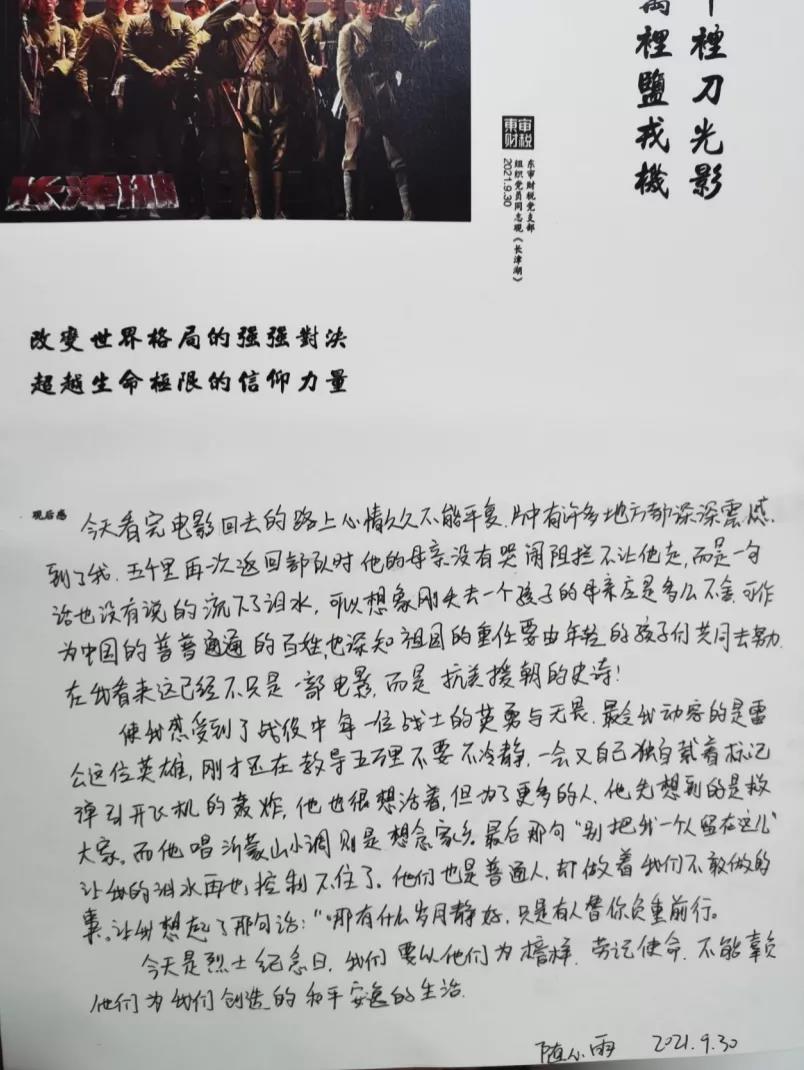 种刀光影
裡鹽戎機
東审
财税
东审财税党支部
组织党员同志观《长津湖》
2021.9.30
长津湖
改變世界格局的强强對决
超越生命極限的信仰力量
观后感
今天看完电影回去的路上心情久久不能平复.片中有许多地方都深深震感
到了我.五千里再次返回部队时他的母亲没有哭闹阻拦不让他走,而是一句
话也没有说的流下了泪水,可以想象刚失去一个孩子的母亲应是多么不舍.可作
为中国的普普通通的百姓,也深知祖国的重任要由年轻的孩子们共同去努力.
在我看来这已经不只是一部电影,而是抗美援朝的史诗!
使我感受到了战役中每一位战士的英勇与无畏.最令我动容的是雷
公这位英雄,刚才还在教导五万里不要不冷静,一会又自己独自载着标记
弹引开飞机的轰炸,他也很想活着,但为了更多的人,他先想到的是救
大家。而他唱沂蒙山小调则是想念家乡.最后那句"别把我一个人留在这儿"
让我的泪水再也控制不住了。他们也是普通人,却做着我们不敢做的
事。让我想起了那句话:"哪有什么岁月静好,只是有人替你负重前行。
今天是烈士纪念日,我们要以他们为榜样.劳记使命.不能辜负
他们为我们创造的和平安逸的生活.
随心雨 2021.9.30